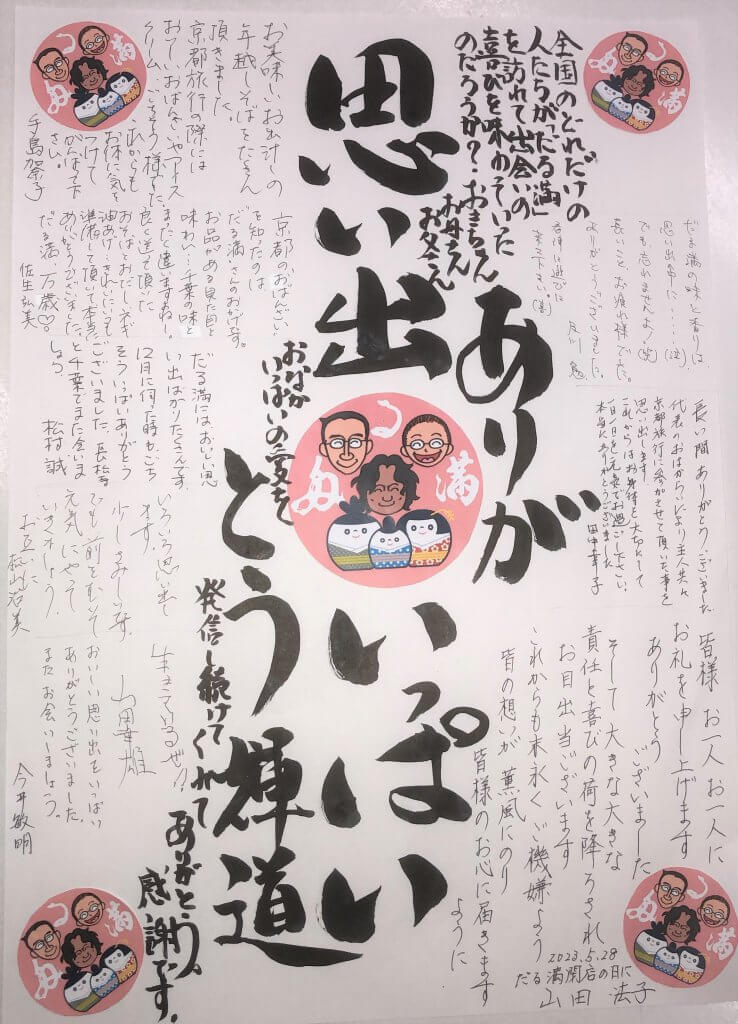 思い出
いっぱい
ありが
とう輝道
全国のどれだけの
人たちが「だる満」
を訪れて出会いの
喜びを味わっていた
のだろうか？
おきちゃん
お母さん
お父さん
おなか
いっぱいの愛を
発信し続けてくれて
ありがとう、
感謝です。
だる満
だる満の味と香りは
思い出の中に・・・・・(泣)
でも忘れませんよ！(笑)
長いことお疲れ様でした。
ありがとうございました。
長い間ありがとうございました
代表のおはからいにより主人共々
京都旅行に参加させて頂いた事を
思い出します
これからはお身体を大切にして
一日一日を元気でお過し下さい。
本当にありがとうございました
田中幸子
皆様 お一人お一人に
お礼を申し上げます
ありがとう
ございました
そして大きな大きな
責任と喜びの荷を降ろされ
お目出当ございます
これからも末永くご機嫌よう
皆の想いが 薫風にのり
皆様のお心に届きます
ように
2023.5.28
だる満閉店の日に
山田 法子
お美味しいお出汁の
年越しそばをたくさん
頂きました。
京都旅行の際には
おいしいおばんざいやアイス
クリーム…ごちそう様でした。
これからも
お体に気を
つけて
がんばって下
さい。
手島賀子
京都のおばんざい
を知ったのは
だる満さんのおかげです。
お品がある見た目と
味わい…千葉の味と
まったく違いますねー。
良く送って頂いた
おそばとおだし、ネギ
油あげ…きれいにいつも
準備して頂いて本当に
ありがとうございました。
だる満 万歳♡。
佐生弘美
だる満にはおいしい思
い出ばかりたくさんです。
12月に伺った時もごち
そういっぱいありがとう
ございました。長松寺
と千葉でまた会いま
しょう
松村 誠
いろいろ思い出て
ます。
少しさみしいな。
でも 前をむいて
元気にやって
いきましょう。
お互いに
「生きているぜ!!」
山田幸雄
おいしい思い出をいっぱい
ありがとうございました。
またお会いしましょう。
今井敏明